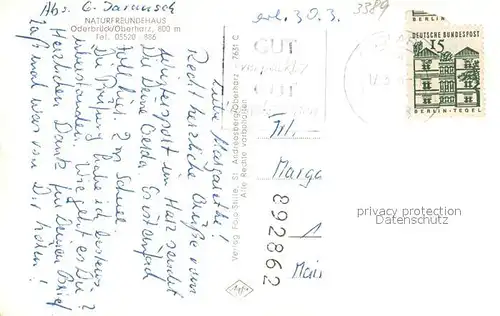 Abs. G.
NATURFREUNDEHAUS
Oderbrück/Oberharz, 800 m
Tel. 05520 - 886
Liebe Margarethe!
Recht herzliche Grüße vom
Wintersport im Harz sendet
Dir Deine Gerda. Es ist einfach
toll hier. 2 m Schnee.
Die Prüfung habe ich bestens
überstanden. Wie geht es Dir?
Herzlichen Dank für Deinen Brief
Laß mal was von Dir hören!
Verlag Foto-Stille, St. Andreasberg/Oberharz - 7631 C
Alle Rechte vorbehalten
erh. 30.3.
3389
GUT
verpackt
GUT
BERLIN
DEUTSCHE BUNDESPOST
15
BERLIN-TEGEL
Frl.
Marga
1
Main
892862
privacy protection
Datenschutz